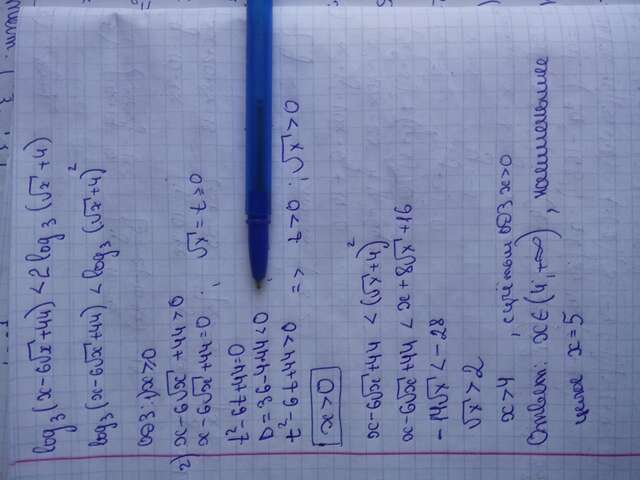 log₃(x-6√x+44) < 2log₃(√x+4)
log₃(x-6√x+44) < log₃(√x+4)²
ОДЗ: 1) x≥0
2) x-6√x+44>0
x-6√x+44=0; √x=t≥0
t²-6t+44=0
D=36-4·44<0
t²-6t+44>0 => t>0; √x>0
x>0
x-6√x+44 < (√x+4)²
x-6√x+44 < x+8√x+16
-14√x<-28
√x>2
x>4, с учётом ОДЗ x>0
Ответ: x∈(4;+∞), наименьшее
целое x=5